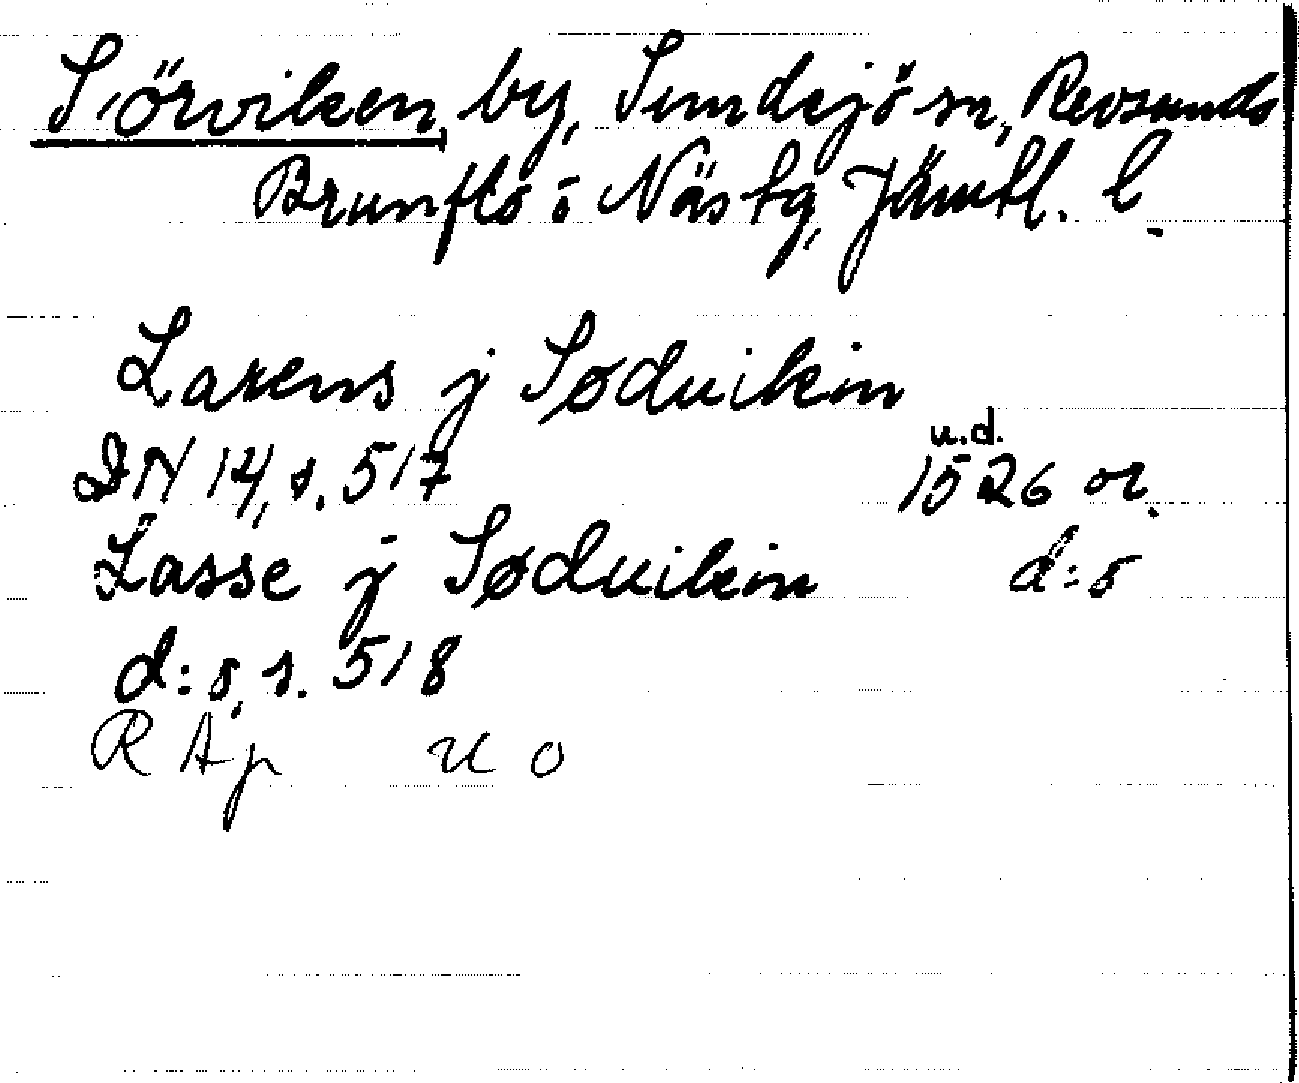 Sörviken, by, Sundsjö sn, Revsunds
Brunflo o Näs tg, Jämtl. l.
Larens j Søduikin
u.d.
DN 14, s. 517 1526 or.
Lasse j Søduikin d:o
d:o, s. 518
R Ap u o